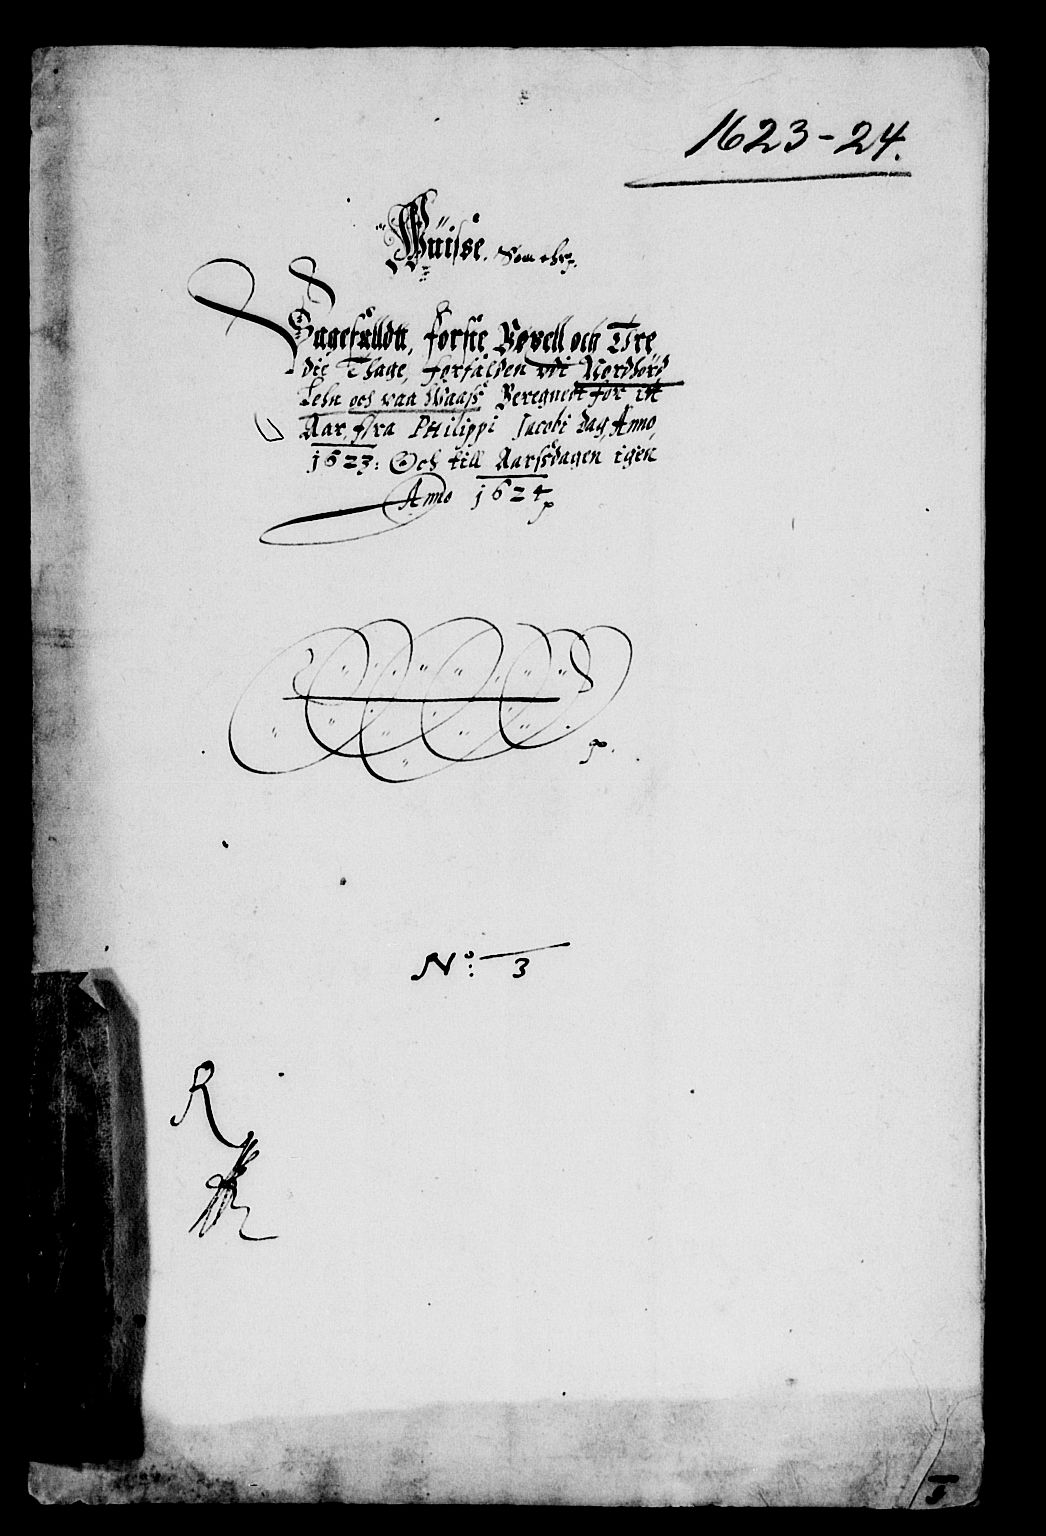 1623-24.
Wüisse. Som ehr.
Sagefalldtt, første Bøxell och Tre
die Thage, forfalden vdi Nordhord
Lehn och paa Waass Beregnett for itt
Aar, ffra Philippi Jacobi dag, Anno,
1623: Och till Aarssdagen igen
Anno 1624
No: 3
R